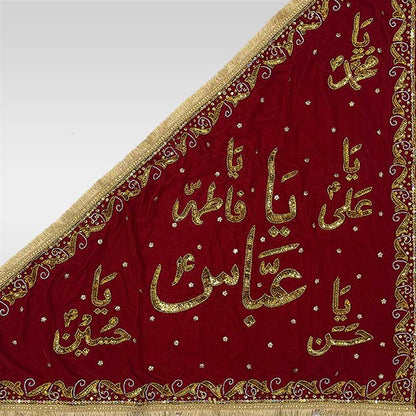 یا محمدؐ
یا علیؑ
یا فاطمہؑ
یا عباسؑ
یا حسنؑ
یا حسینؑ